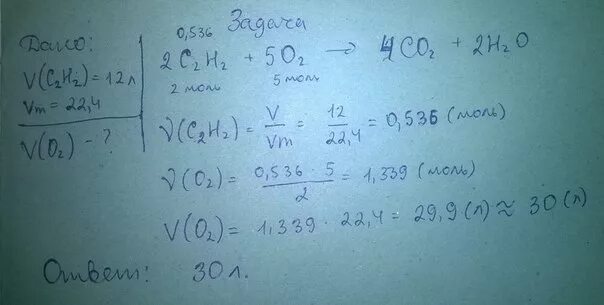 Задача
Дано:
V(C₂H₂) = 12 л
Vm = 22,4
V(O₂) - ?
0,536
2C₂H₂ + 5O₂ → 4CO₂ + 2H₂O
2 моль 5 моль
ν(C₂H₂) = V/Vm = 12/22,4 = 0,536 (моль)
ν(O₂) = 0,536 · 5/2 = 1,339 (моль)
V(O₂) = 1,339 · 22,4 = 29,9 (л) ≈ 30 (л)
Ответ: 30 л.